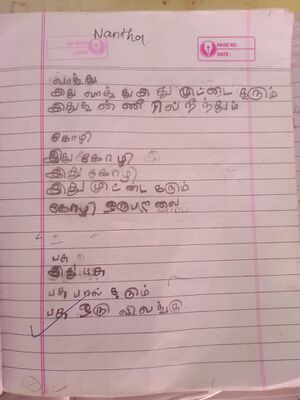 Nantha
PAGE NO.
DATE :
வாத்து
இது வாத்து இது முட்டை தரும்
இது தண்ணீரில் நீந்தும்
கோழி
இது கோழி
இது கோழி
இது முட்டை தரும்
கோழி ஒரு பறவை
பசு
இது பசு
பசு பால் தரும்
பசு ஒரு விலங்கு